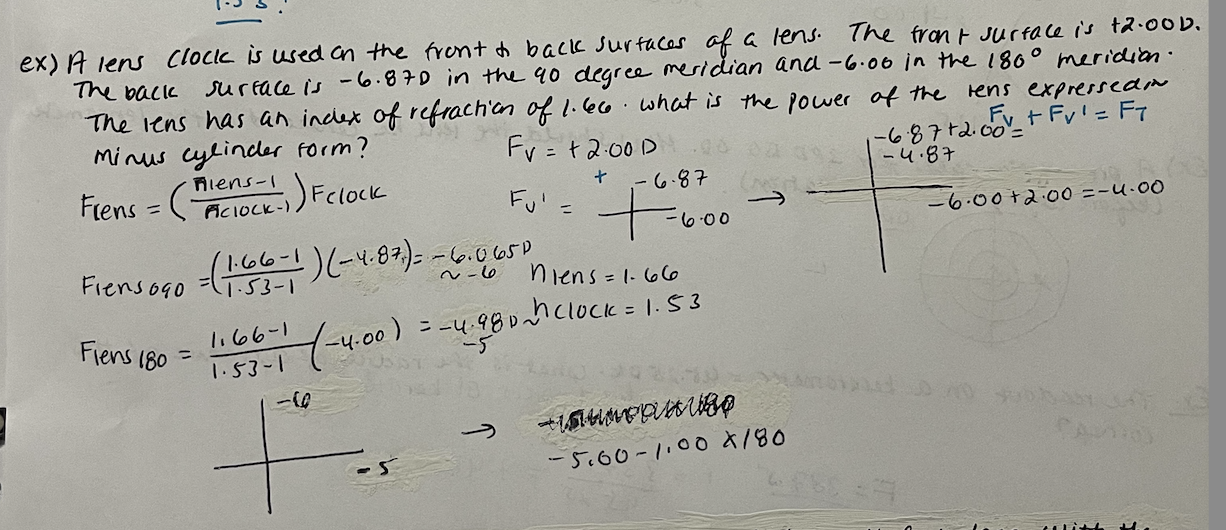 1.53.
ex) A lens clock is used on the front & back surfaces of a lens. The front surface is +2.00D.
The back surface is -6.87D in the 90 degree meridian and -6.00 in the 180° meridian.
The lens has an index of refraction of 1.66. what is the power of the lens expressed in
minus cylinder form?
Fv + Fv' = FT
Fv = +2.00 D
-6.87+2.00=
-4.87
Flens = (nlens-1 / nclock-1) Fclock
+
Fv' =
-6.87
-6.00
→
-6.00+2.00 =-4.00
Flens 090 = (1.66-1 / 1.53-1)(-4.87) = -6.065D
~ -6
nlens = 1.66
nclock = 1.53
Flens 180 = 1.66-1 / 1.53-1 (-4.00) = -4.98D ~
-5
-6
-5
→
-5.00-1.00 x180